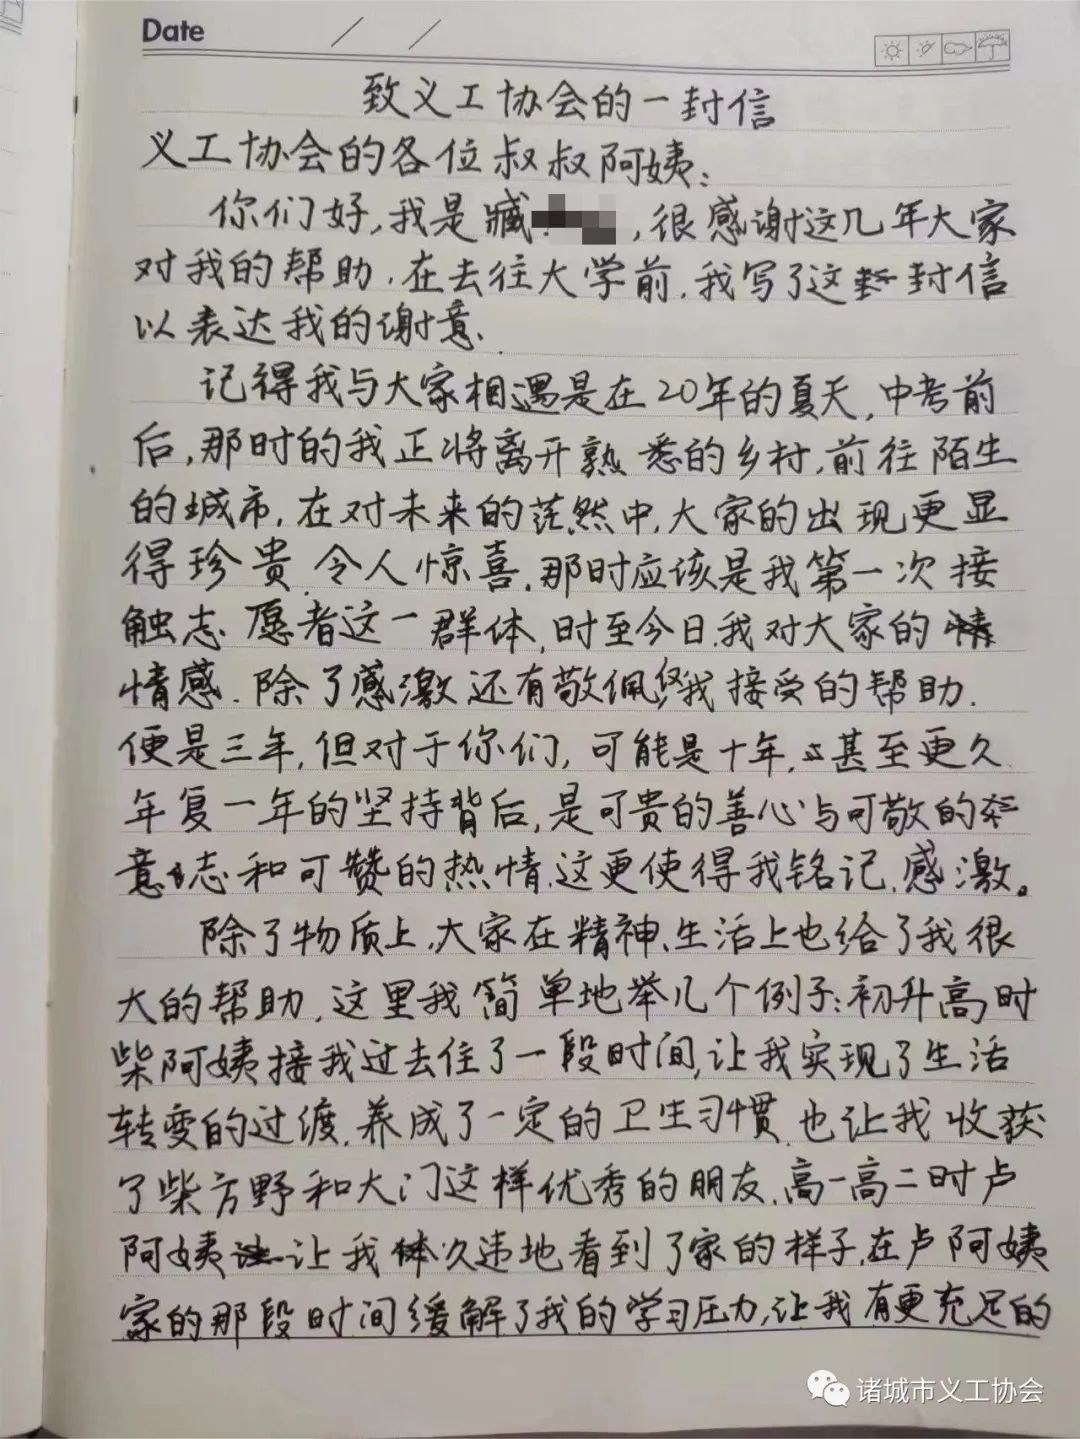 Date / /
致义工协会的一封信
义工协会的各位叔叔阿姨：
你们好，我是臧，很感谢这几年大家
对我的帮助，在去往大学前，我写了这封信
以表达我的谢意.
记得我与大家相遇是在20年的夏天，中考前
后，那时的我正将离开熟悉的乡村，前往陌生
的城市，在对未来的茫然中，大家的出现更显
得珍贵，令人惊喜，那时应该是我第一次接
触志愿者这一群体，时至今日，我对大家的
情感，除了感激还有敬佩，我接受的帮助，
便是三年，但对于你们，可能是十年，甚至更久
年复一年的坚持背后，是可贵的善心与可敬的
意志和可赞的热情，这更使得我铭记，感激。
除了物质上，大家在精神、生活上也给了我很
大的帮助，这里我简单地举几个例子：初升高时
柴阿姨接我过去住了一段时间，让我实现了生活
转变的过渡，养成了一定的卫生习惯，也让我收获
了柴方野和大门这样优秀的朋友，高一高二时卢
阿姨让我次违地看到了家的样子，在卢阿姨
家的那段时间缓解了我的学习压力，让我有更充足的
诸城市义工协会